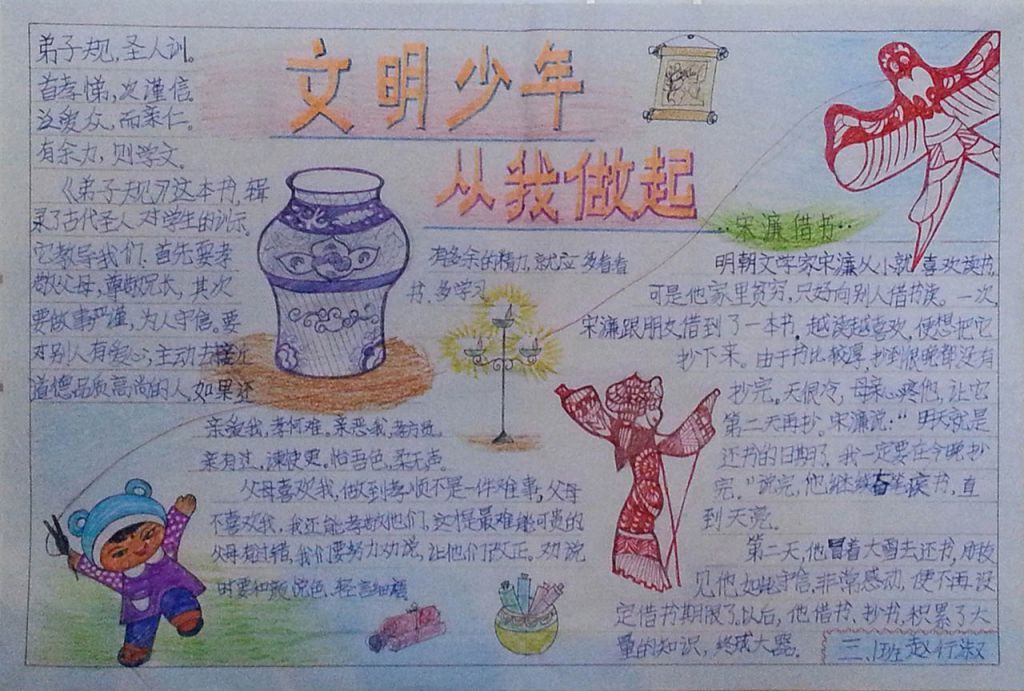 文明少年
从我做起
弟子规,圣人训。
首孝悌,次谨信。
泛爱众,而亲仁。
有余力,则学文。
《弟子规》这本书,辑
录了古代圣人对学生的训示
它教导我们,首先要孝
敬父母,尊敬兄长,其次
要做事严谨,为人守信。要
对别人有爱心,主动去接近
道德品质高尚的人,如果还
有多余的精力,就应多看看
书,多学习
亲爱我,孝何难。亲恶我,孝方贤。
亲有过,谏使更。怡吾色,柔无声。
父母喜欢我,做到孝顺不是一件难事,父母
不喜欢我,我还能孝敬他们,这才是最难能可贵的
父母有过错,我们要努力劝说,让他们改正,劝说
时要和颜悦色,轻言细语
宋濂借书
明朝文学家宋濂从小就喜欢读书,
可是他家里贫穷,只好向别人借书读。一次,
宋濂跟朋友借到了一本书,越读越喜欢,便想把它
抄下来。由于书比较厚,抄到很晚都没有
抄完。天很冷,母亲心疼他,让它
第二天再抄。宋濂说:“明天就是
还书的日期了,我一定要在今晚抄
完。”说完,他继续奋笔疾书,直
到天亮。
第二天,他冒着大雪去还书,朋友
见他如此守信,非常感动,便不再设
定借书期限了。以后,他借书、抄书,积累了大
量的知识,终成大器。
三.1班赵行淑